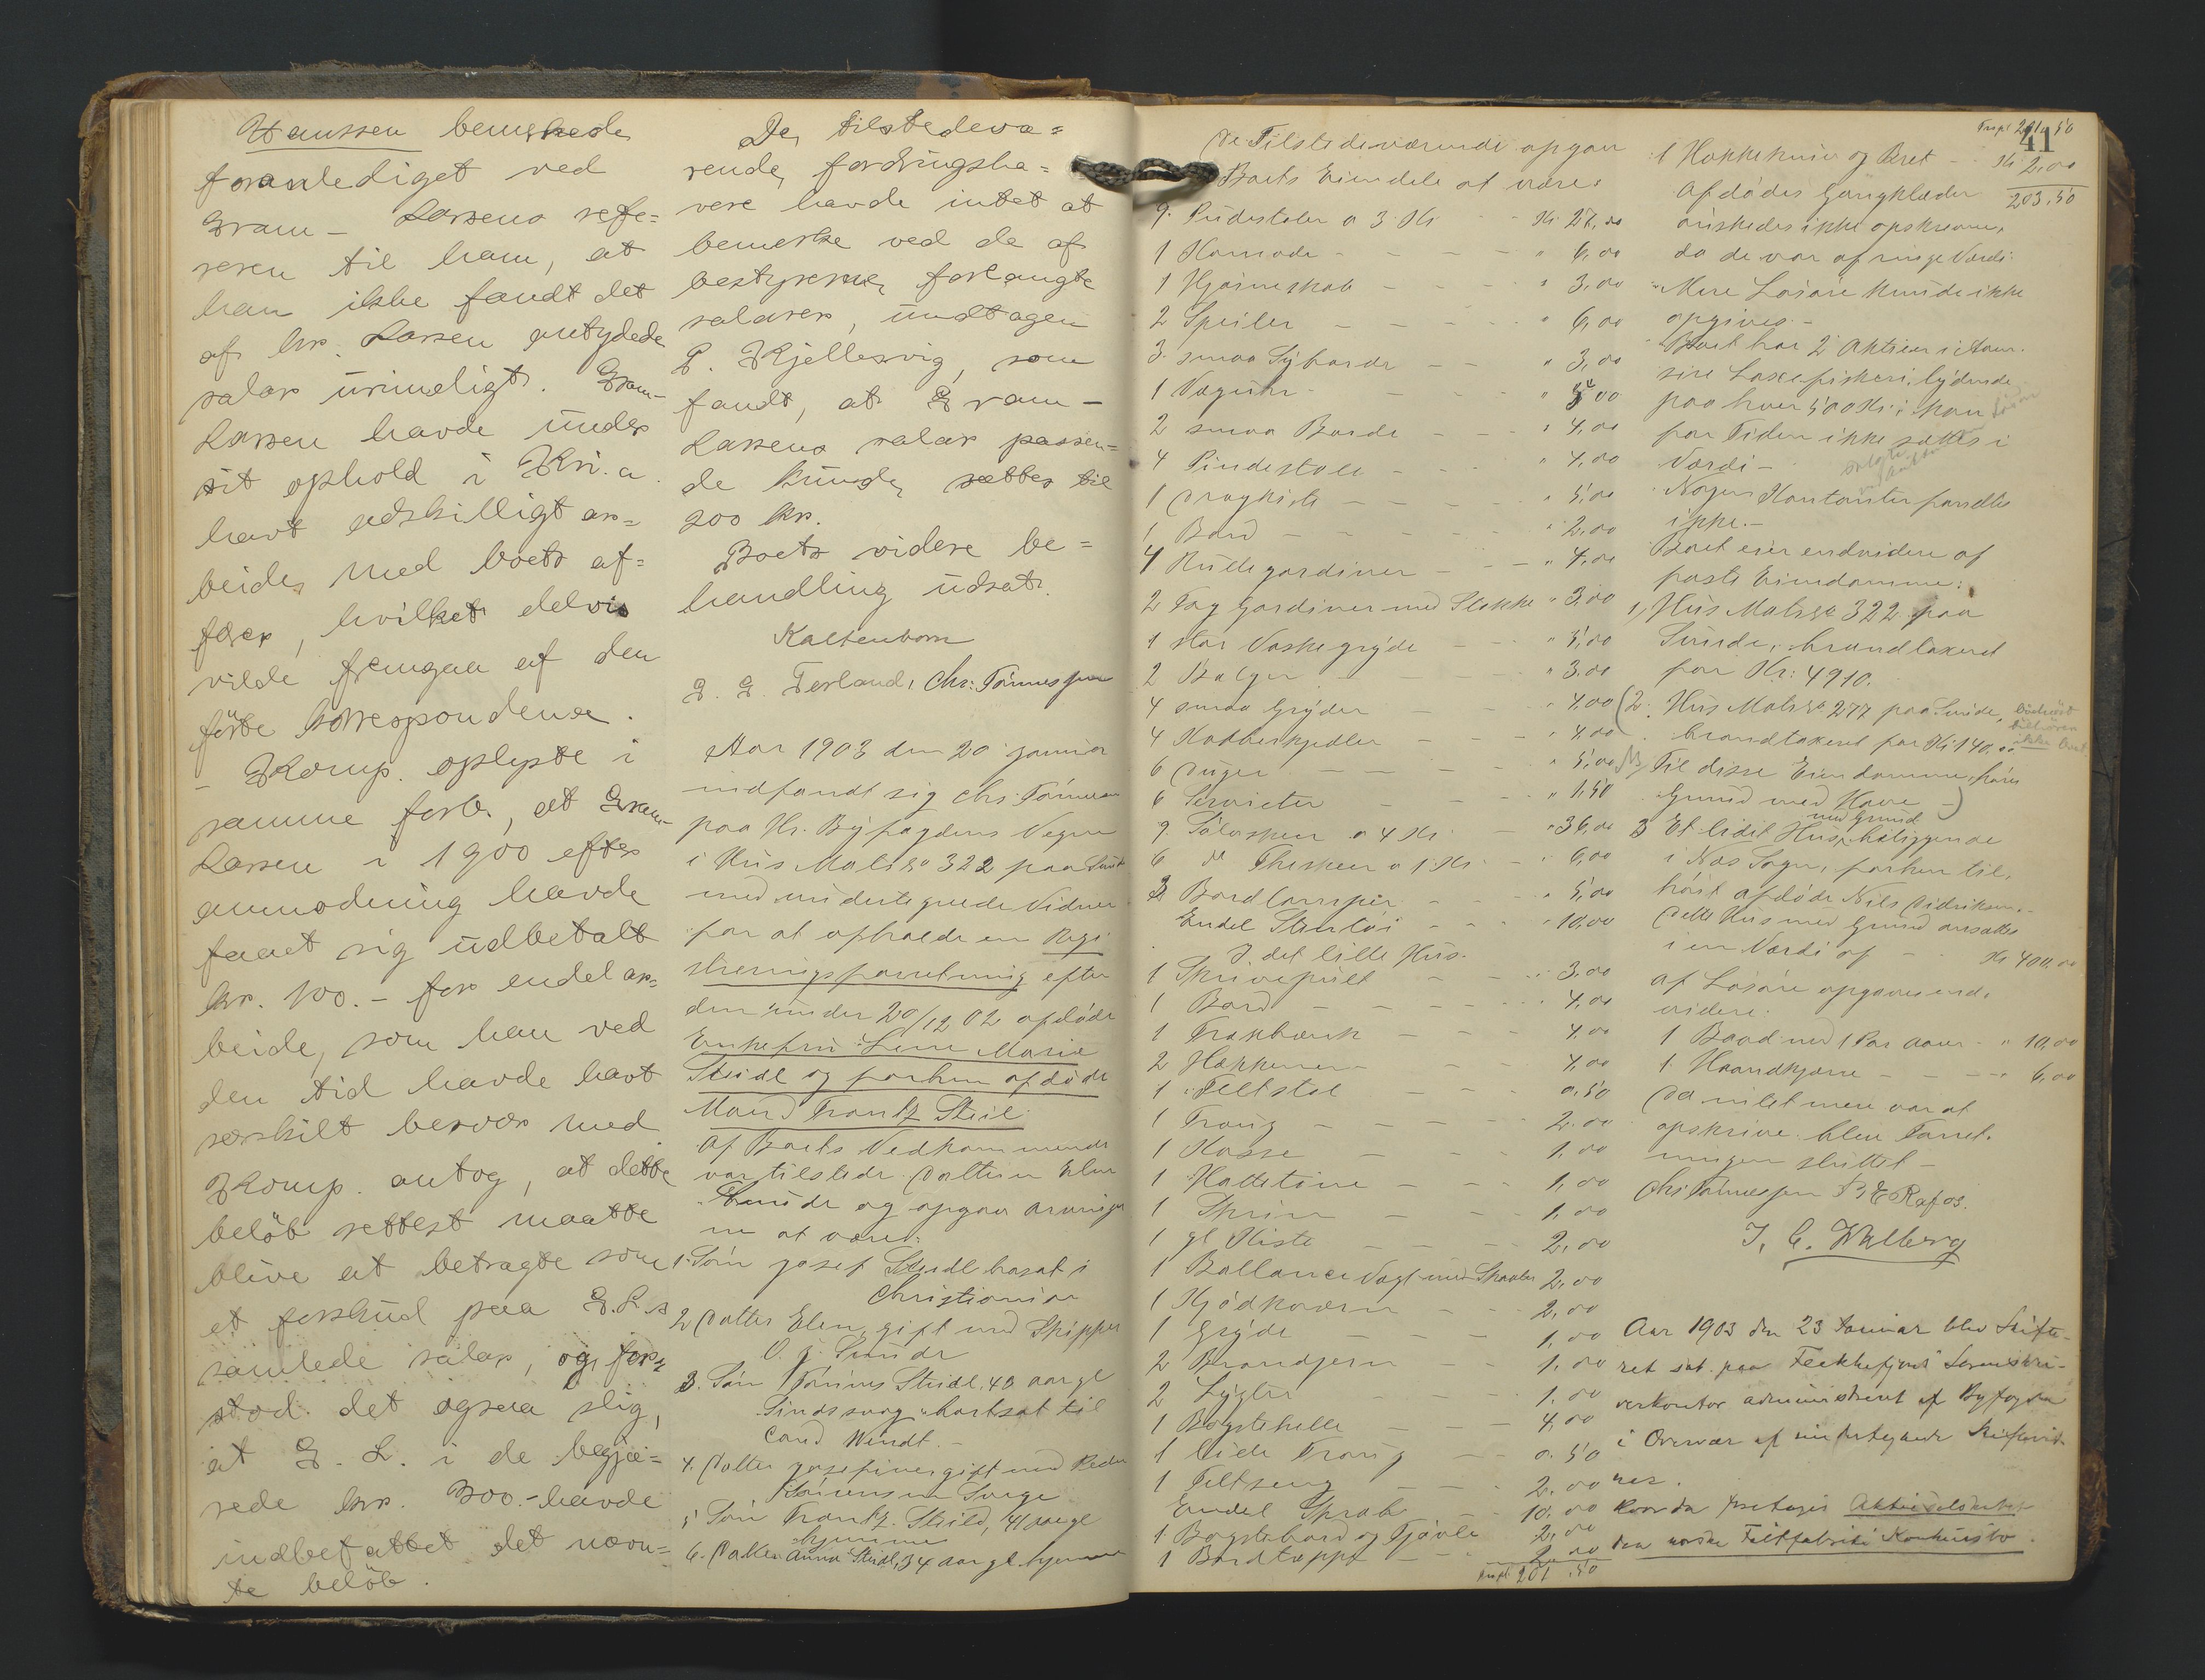 Hanssen bemerkede
foranlediget ved
Gram-Larsens refe=
reren til ham, at
han ikke fandt det
af hr. Larsen antydede
salær urimeligt. Gram-
Larsen havde under
sit ophold i Kri.a
havt adskilligt ar=
beide med boets af=
færer, hvilket delvis
vilde fremgaa af den
förte korrespondense.
- Komp. oplyste i
samme forb., at Gram-
Larsen i 1900 efter
anmodning havde
faaet sig udbetalt
kr. 100.- for endel ar=
beide, som han ved
den tid havde havt
særskilt besvær med.
Komp. antog, at dette
belöb rettest maatte
blive at betragte som
et forskud paa G.L.s
samlede salær, og for=
stod det ogsaa slig,
at G. L. i de begjæ=
rede kr. 300.- havde
indbefattet det nævn=
te belöb.
De tilstedevæ=
rende fordringsha=
vere havde intet at
bemerke ved de af
bestyrerne forlangte
salærer, undtagen
P. Kjellesvig, som
fandt, at Gram-
Larsens salær passen=
de kunde sættes til
200 kr.
Boets videre be=
handling udsat.
Kaltenborn
G. G. Terland, Chr. Tönnessen
Aar 1903 den 20 januar
indfandt sig Chr. Tönnessen
paa Hr. Byfogdens Vegne
i Hus Matr No 322 paa Sunde
med undertegnede Vidner
for at afholde en Regi
streringsforretning efter
den under 20/12 02 afdöde
Enkefru Lene Marie
Steidl og forhen afdöde
Mand Frantz Steil.
Af Boets Vedkommende
var tilstede Datteren Elen
Sunde og opgav arvinger
ne at være:
1. Sön Josef Steidl bosat i
Christiania
2 Datter Elen, gift med Skipper
O. J. Sunde
3. Sön Tönnes Steidl, 40 aar gl
Sindssvag, bortsat til
Cand Windt.-
4. Datter Josefine, gift med
5 Sön Frantz Steild, 41 aar gl
hjemme
6. Datter Anna Steidl, 34 aar gl. hjemme
De Tilstedeværende opgav
Boets Eiendele at være:
9. Pudestoler a 3 Kr - - Kr 27,00
1 Komode - - - - " 6,00
1 Hjörneskab - - - " 3,00
2 Speiler - - - - " 6,00
3. smaa Syborde - - " 3,00
1 Væguhr - - - " 00
2 smaa Borde - - - " 4,00
4 Pindestole - - - " 4,00
1 Dragkiste - - - - " 5,00
1 Bord - - - - - " 2,00
4 Rullegardiner - - - " 4,00
2 Fag Gardiner med Stokke " 3,00
1 stor Vaskegryde - - " 5,00
2 Balger - - - " 3,00
4 smaa Gryder - - - 4,00
4 Kobberkjedler - - - " 4,00
6 Duger - - - - " 5,00
6 Servieter - - - " 1,50
9. Sölvskeer a 4 Kr. - " 36,00
6 do Theskeer a 1 Kr. - " 6,00
3 Bordlamper - - - " 5,00
Endel Stentöi - - - " 10,00
I det lille Hus.
1 Skrivepult - - - 3,00
1 Bord - - - - 4,00
1 Trækbænk - - - 4,00
2 Hakkener - - - 4,00
1 Feltstol - - - 0,50
1 Traug - - - - 2,00
1 Kasse - - - - 1,00
1 Hattetöine - - - 1,00
1 Skrin - - - 1,00
1 gl Kiste - - - 2,00
1 Ballance Vægt med Skaaler 2,00
1 Kjödkværn - - 2,00
1 Gryde - - - 1,00
2 Brandjern - - 1,00
2 Lygter - - - 1,00
1 Bogstehelle - - 4,00
1 lide Traug - - 0,50
1 Feltseng - - - 2,00
Endel Skrab - - 10,00
1 Bagstebord og Fjæule 2,00
1 Bordtæppe - - 2,00
Trspt 201,50
Trspt 201,50
41
1 Hakkekniv og Bret - Kr 2,00
203,50
Afdödes Gangklæder
önskedes ikke opskrevne,
da de var af ringe Værdi.
Mere Lösöre kunde ikke
opgives.-
Boet har 2 Aktier i Aam.
sire Laxefiskeri, lydende
paa hver 500 Kr; kan
for Tiden ikke sættes i
Værdi -
Nogen Kontanter fandtes
ikke.-
Boet eier endvidere af
faste Eiendomme:
1, Hus Matr No 322 paa
Sunde, brandtaxeret
for Kr: 4910.
(2. Hus Matr No 277 paa Sunde,
brandtaxeret for Kr 140.00
Til disse Eiendomme hörer
Grund med Have -)
med Grund
3 Et lidet Hus, beliggende
i Næs Sogn, forhen til,
hört afdöde Nils Didriksen.-
Dette Hus med Grund ansættes
i en Værdi af - - Kr 400,00
af Lösöre opgaves end.
videre:
1 Baad med 1 Par Aarer - " 10,00
1. Haandkjærre - - - " 6,00
Da intet mere var at
opskrive blev Forret.
ningen sluttet -
Chr Tönnessen P. E Rafos.
J. C. Walberg
Aar 1903 den 23 Januar blev Skifte-
ret sat paa Flekkefjords Sorenskri-
verkontor administreret af Byfogden
i Overvær af undertegnede Skiftevid-
ner.
Hvorda foretoges Aktieselskabet
den norske Filtfabriks Konkursbo.